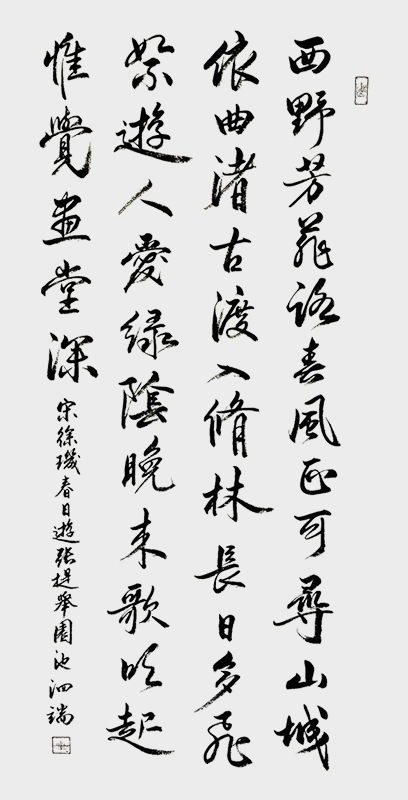 西野芳菲路春風正可尋山城
依曲渚古渡入脩林長日多飛
絮遊人愛緑陰晚来歌吹起
惟覺畫堂深
宋徐璣春日遊張提舉園池泗端